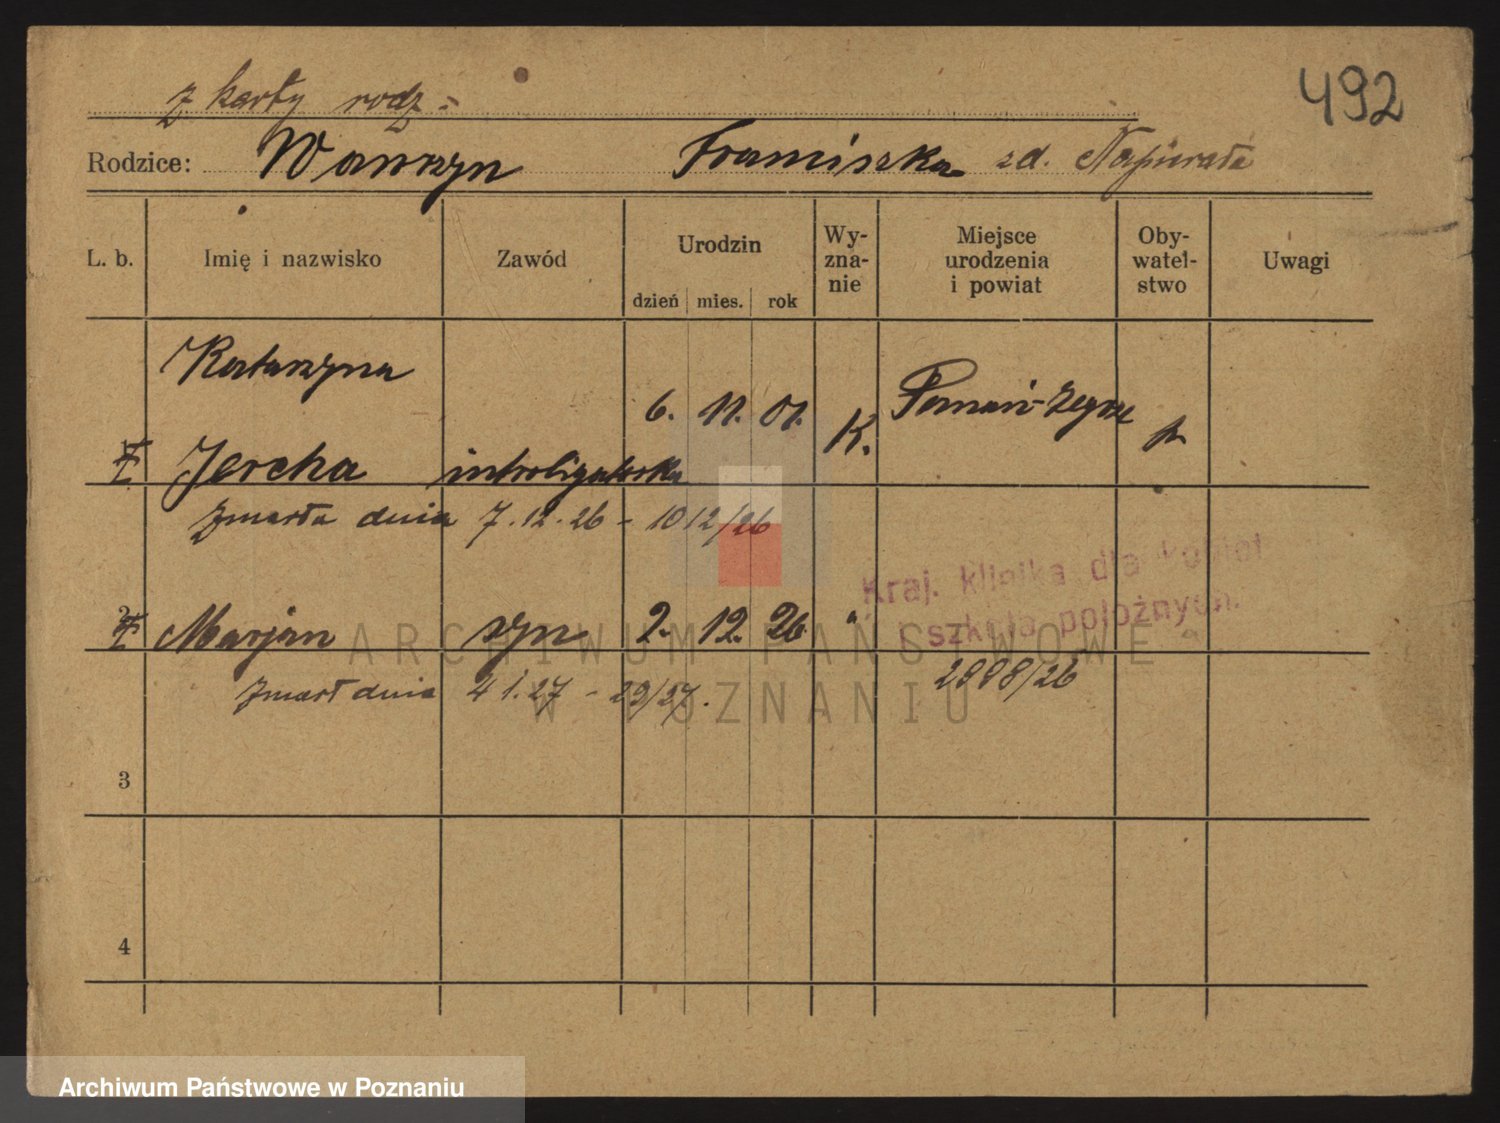 492
z karty rodz.
Rodzice: Wawrzyn Franciszka zd. Napierała
L. b. Imię i nazwisko Zawód Urodzin dzień mies. rok Wy-zna-nie Miejsce urodzenia i powiat Oby-watel-stwo Uwagi
Katarzyna
6. 11. 01. K. Poznań-Zegrze p.
Jercha introligatorka
zmarła dnia 7.12.26 - 10 12/26
Kraj. klinika dla kobiet
i szkoła położnych.
2 Marjan syn 2. 12. 26 "
zmarł dnia 4 1.27 - 29/27. 2998/26
3
4
ARCHIWUM PAŃSTWOWE
W POZNANIU
Archiwum Państwowe w Poznaniu